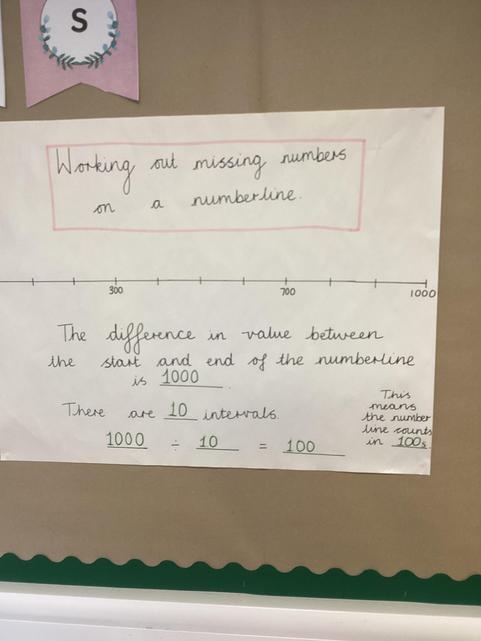 S
Working out missing numbers
on a numberline.
300 700 1000
The difference in value between
the start and end of the numberline
is 1000.
There are 10 intervals.
1000 ÷ 10 = 100
This
means
the number
line counts
in 100s.